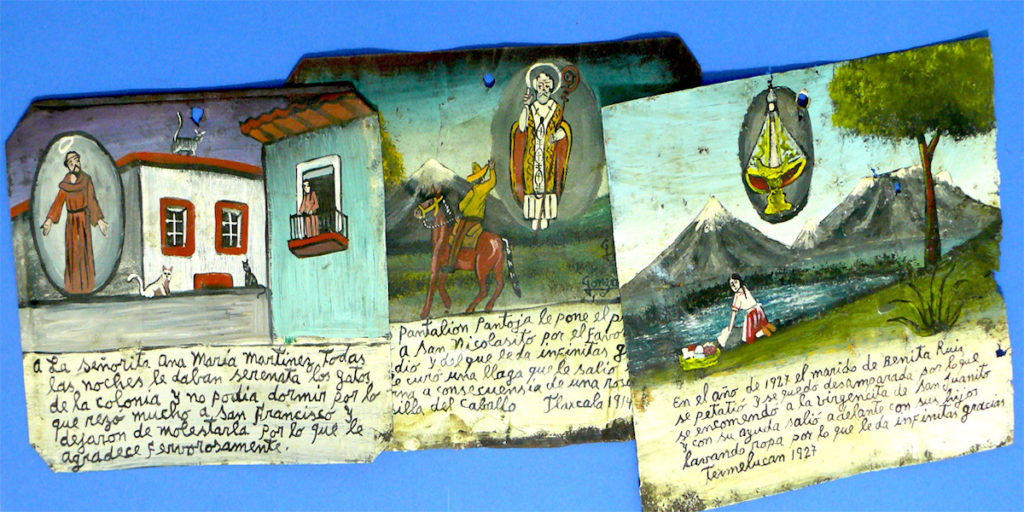 A La señorita Ana María Martines todas
las noches le daban serenata los gatos
de la colonia y no podia dormir por lo
que rezó mucho a San Francisco y
dejaron de molestarla por lo que le
agradece fervorosamente.
Pantalión Pantoja le pone el
a San Nicolasito por el Favo
dió y del que le da infinitas
le curó una llaga que le salió
a consecuensia de una
silla del caballo Tlaxcala 191
En el año de 1927 el marido de Benita Ruis
se petatió y se quedó desamparada por lo que
se encomendo a la virgencita de San Juanito
y con su ayuda salió adelante con sus hijos
Lavando ropa por lo que le da infinitas gracias
Termelucan 1927